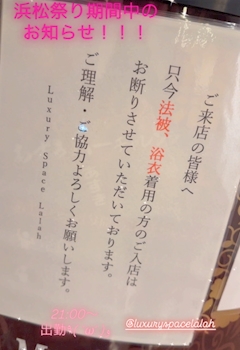 浜松祭り期間中の
お知らせ！！！
ご来店の皆様へ
只今法被、浴衣着用の方のご入店は
お断りさせていただいております。
ご理解・ご協力よろしくお願いします。
Luxury Space Lalah
21:00〜
出勤
@luxuryspacelalah